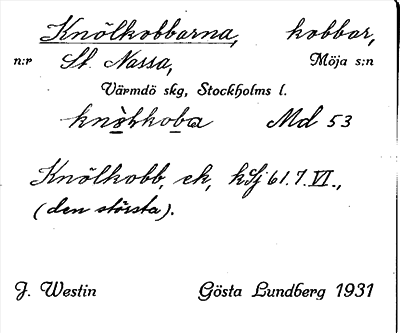 Knölkobbarna, kobbar,
n:r St. Nassa, Möja s:n
Värmdö skg, Stockholms l.
Md 53
Knölkobb, ek, kSj 61.7.VI.,
(den största).
J. Westin Gösta Lundberg 1931